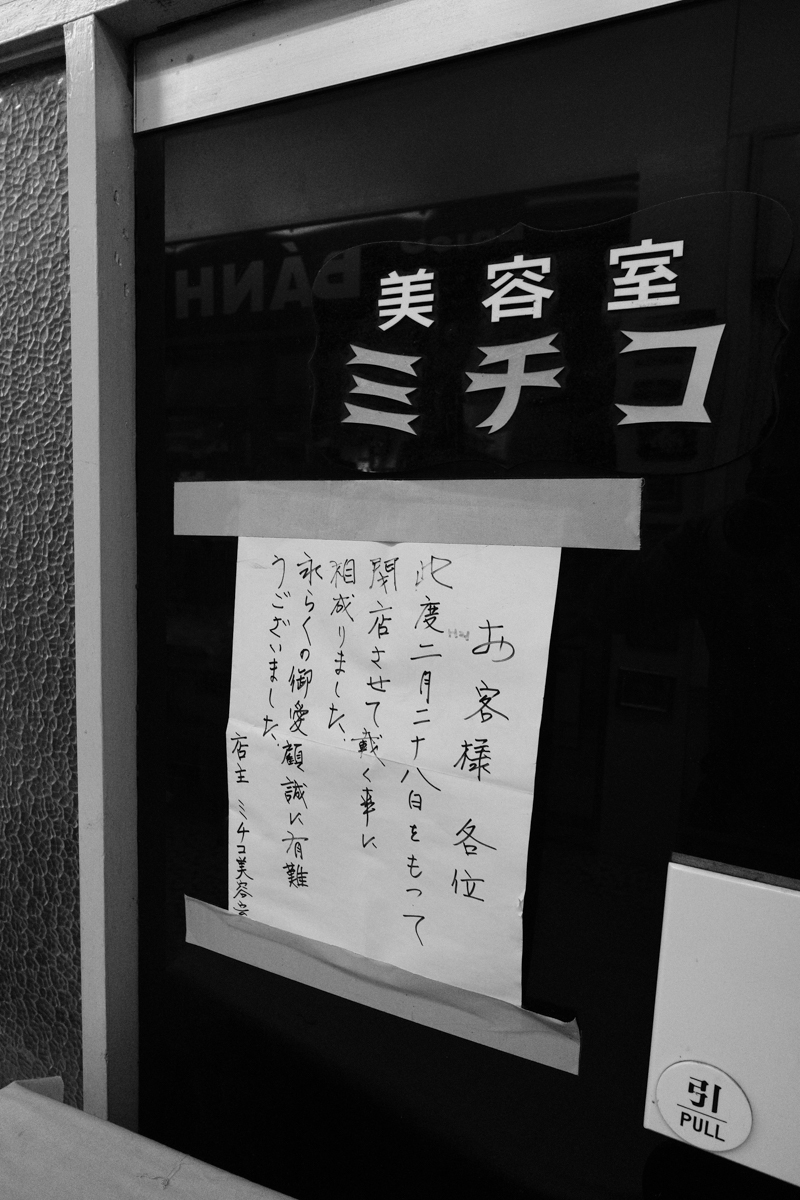 美容室
ミチコ
お客様 各位
此度二月二十八日をもって
閉店させて戴く事に
相成りました。
永らくの御愛顧誠に有難
うございました。
店主 ミチコ美容室
引
PULL
BÁNH